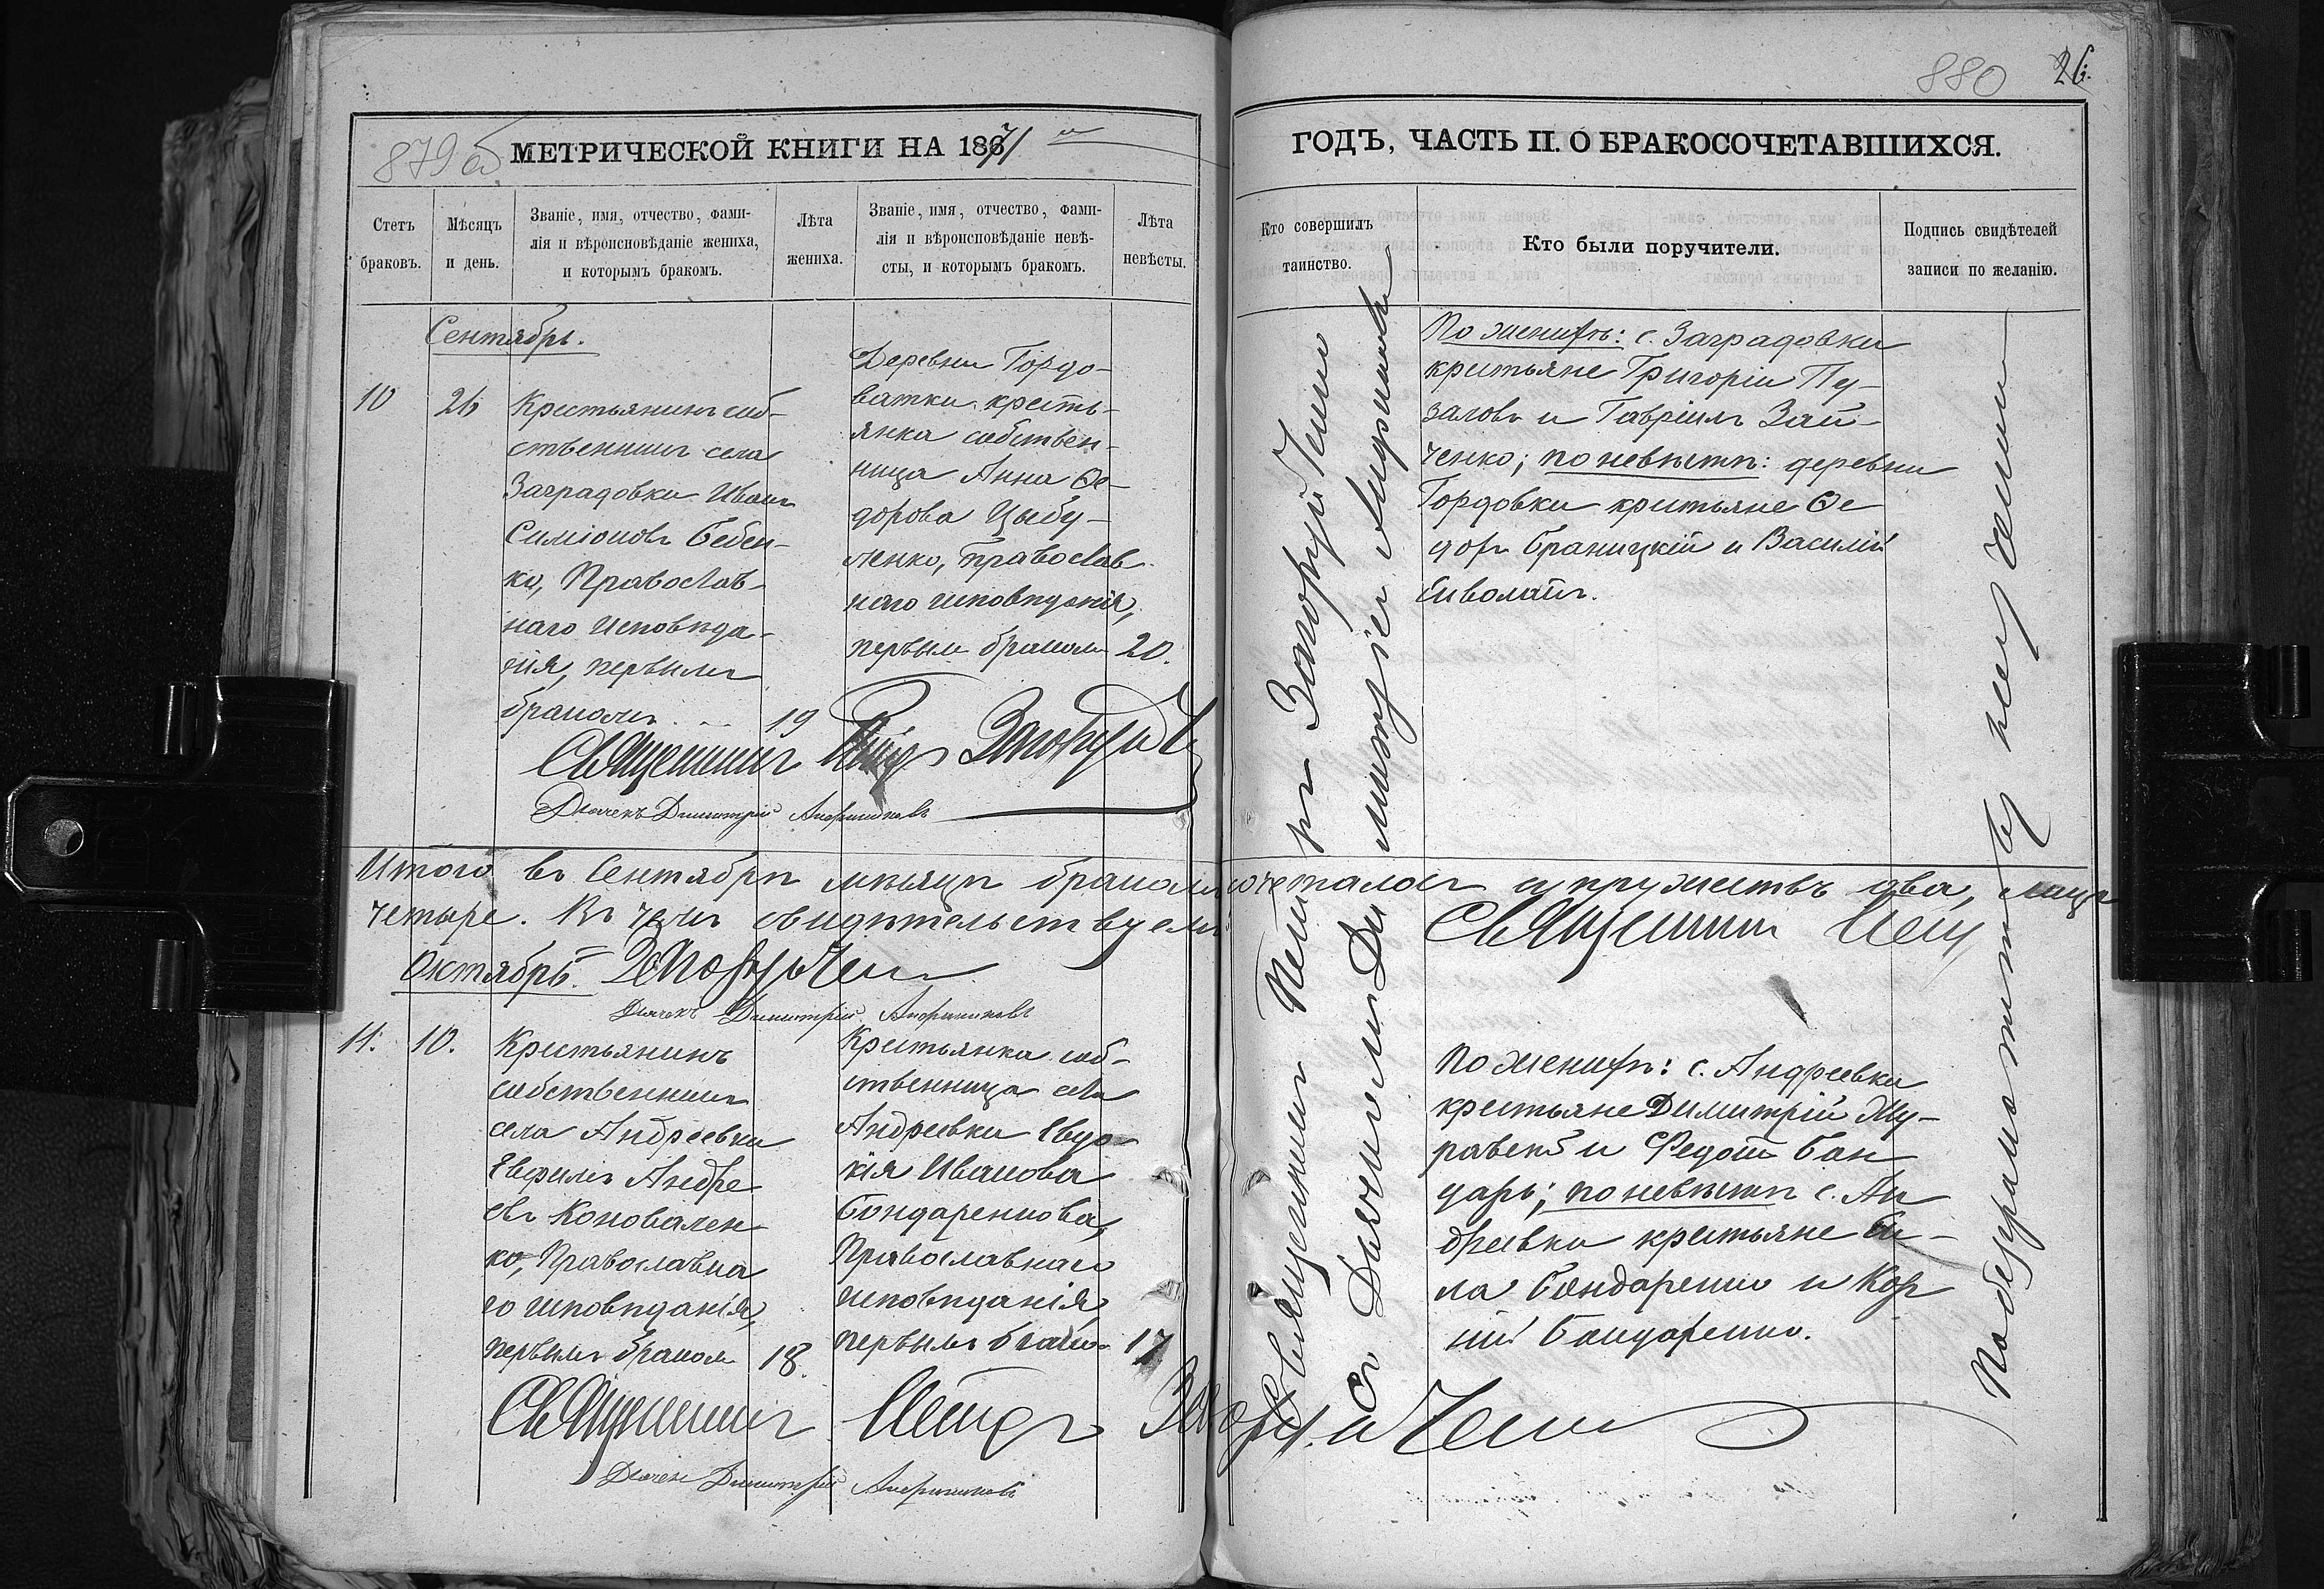 880 26.
879 об МЕТРИЧЕСКОЙ КНИГИ НА 1871
ГОДЪ, ЧАСТЬ II. О БРАКОСОЧЕТАВШИХСЯ.
Счетъ
браковъ.
Мѣсяцъ
и день.
Званіе, имя, отчество, фами-
лія и вѣроисповѣданіе жениха,
и которымъ бракомъ.
Лѣта
жениха.
Званіе, имя, отчество, фами-
лія и вѣроисповѣданіе невѣ-
сты, и которымъ бракомъ.
Лѣта
невѣсты.
Кто совершилъ
таинство.
Кто были поручители.
Подпись свидѣтелей
записи по желанію.
Сентябрь.
10
26
Крестьянинъ соб-
ственникъ села
Заградовки Иванъ
Симіоновъ Бебен-
ко, Православ-
наго Исповѣда-
нія, первымъ
бракомъ
19
Деревни Гордо-
ватки кресть-
янка собствен-
ница Анна Ѳе-
дорова Цыбу-
ленко, Православ-
наго исповѣданія,
первымъ бракомъ
20.
Священникъ Петръ
Дьячекъ Димитрій
По женихѣ: с. Заградовки
крестьяне Григорій Пу-
заловъ и Гавріилъ Зай-
ченко; по невѣстѣ: деревни
Гордовки крестьяне Ѳе-
доръ Браницкій и Василій
Сиволапъ.
Священникъ Петръ
съ Дьячкомъ Димитріемъ
Итого въ Сентябрѣ мѣсяцѣ бракомъ сочеталось супружествъ два, лицъ
четыре. Въ чемъ свидѣтельствуемъ Священникъ Петръ
Октябрь.
Дьячекъ Димитрій
11.
10.
Крестьянинъ
собственникъ
села Андреевки
Евфимъ Андре
евъ Коновален-
ко, Православна
го исповѣданія,
первымъ бракомъ
18.
Крестьянка соб-
ственница села
Андреевки Евдо-
кія Иванова
Бондаренкова,
Православнаго
исповѣданія,
первымъ бракомъ
17
По женихѣ: с. Андреевки
крестьяне Димитрій Му-
равекъ и Федотъ Бон
дарь; по невѣстѣ с. Ан
дреевки крестьяне Си-
ла Бондаренко и Кор
ній Бондаренко.
Священникъ Петръ
Дьячекъ Димитрій